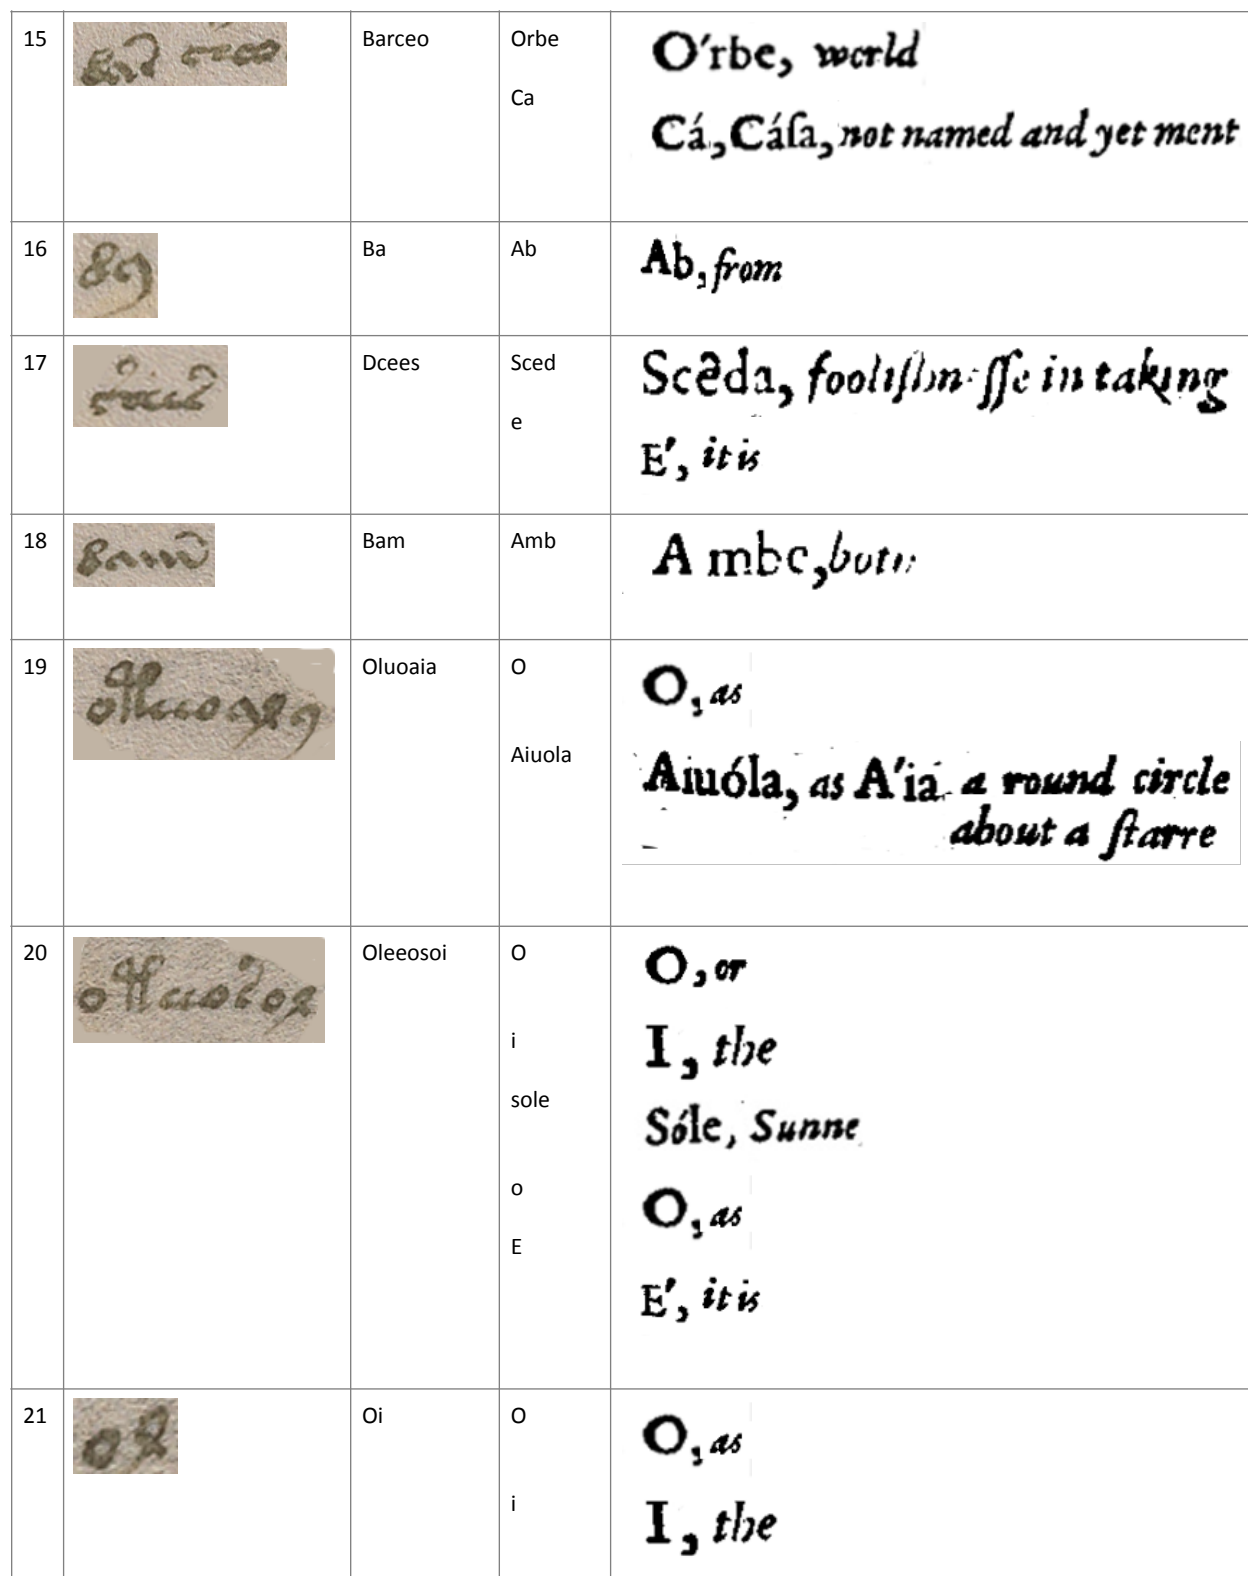 15
Barceo
Orbe
Ca
O'rbe, world
Cá, Cáſa, not named and yet ment
16
Ba
Ab
Ab, from
17
Dcees
Sced
e
Scēda, in taking
E', it is
18
Bam
Amb
Ambe,
19
Oluoaia
O
Aiuola
O, as
Aiuóla, as A'ia a round circle
about a ſtarre
20
Oleeosoi
O
i
sole
o
E
O, or
I, the
Sóle, Sunne
O, as
E', it is
21
Oi
O
i
O, as
I, the